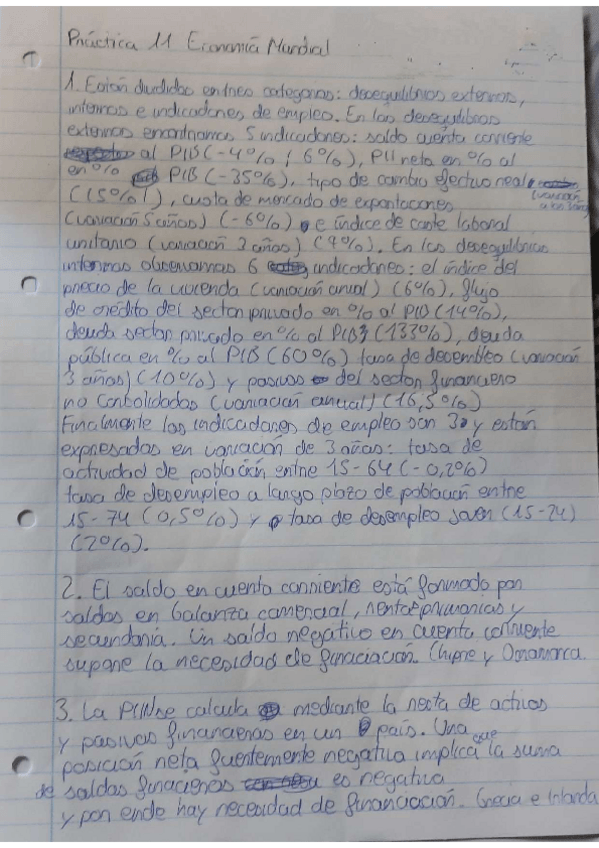 Práctica 11 Economía Mundial
1. Están divididas en tres categorías: desequilibrios externos,
internos e indicadores de empleo. En los desequilibrios
externos encontramos 5 indicadores: saldo cuenta corriente
al PIB (-4% / 6%), PII neta en % al
en % PIB (-35%), tipo de cambio efectivo real
(variación
(15%), cuota de mercado de exportaciones
(variación 5 años) (-6%) e índice de coste laboral
unitario (variación 2 años) (9%). En los desequilibrios
internos observamos 6 indicadores: el índice del
precio de la vivienda (variación anual) (6%), flujo
de crédito del sector privado en % al PIB (14%),
deuda sector privado en % al PIB (133%), deuda
pública en % al PIB (60%) tasa de desempleo (variación
3 años) (10%) y pasivos del sector financiero
no consolidados (variación anual) (16,5%)
Finalmente los indicadores de empleo son 3 y están
expresados en variación de 3 años: tasa de
actividad de población entre 15-64 (-0,2%)
tasa de desempleo a largo plazo de población entre
15-74 (0,5%) y tasa de desempleo joven (15-24)
(2%).
2. El saldo en cuenta corriente está formado por
saldos en balanza comercial, rentas primarias y
secundaria. Un saldo negativo en cuenta corriente
supone la necesidad de finaciación. Chipre y Dinamarca.
3. La PIIN se calcula mediante la resta de activos
y pasivos financieros en un país. Una
posición neta fuertemente negativa implica que la suma
de saldos finacieros es negativa
y por ende hay necesidad de financiación. Grecia e Irlanda